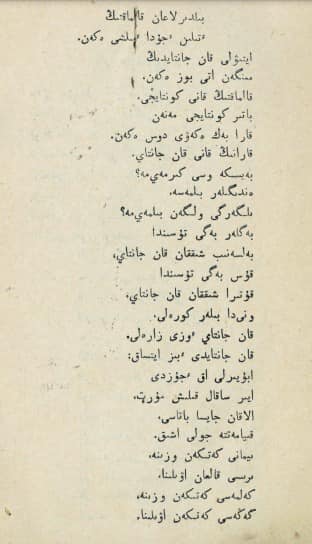 بىلدىرلاعان قالماقتىڭ
ءتىلىن ءجۇدا ءبىلىشى ەكەن.
ايتۋلى قان جانتايدىڭ
مىنگەن اتى بوز ەكەن.
قالماقتىڭ قانى كونتايجى.
باتىر كونتايجى مەنەن
قارا بەك ەكەۋى دوس ەكەن.
قارانىڭ قانى قان جانتاي.
بەسكە وسى كىرمەيمە؟
ەندىگىلەر بىلمەسە.
ىلگەرگى ولگەن بىلمەيمە؟
بەگلەر بەگى تۇسىندا
بەلسەنىپ شىققان قان جانتاي،
قۇس بەگى تۇسىندا
قۇتىرا شىققان قان جانتاي،
ونىدا بىلەر كورەلى.
قان جانتاي ءوزى زارەلى.
قان جانتايدى ءبىز ايتساق:
ابۇيىرلى اق ءجۇزدى
ايىر ساقال قىلىش مۇرت.
الاقان جايسا باتاسى.
قيامەتتە جولى اشىق.
يمانى كەتكەن وزىنە،
ىرىسى قالعان اۋىلىنا.
كەلمەسى كەتكەن وزىنە،
كەڭەسى كەتكەن اۋىلىنا.